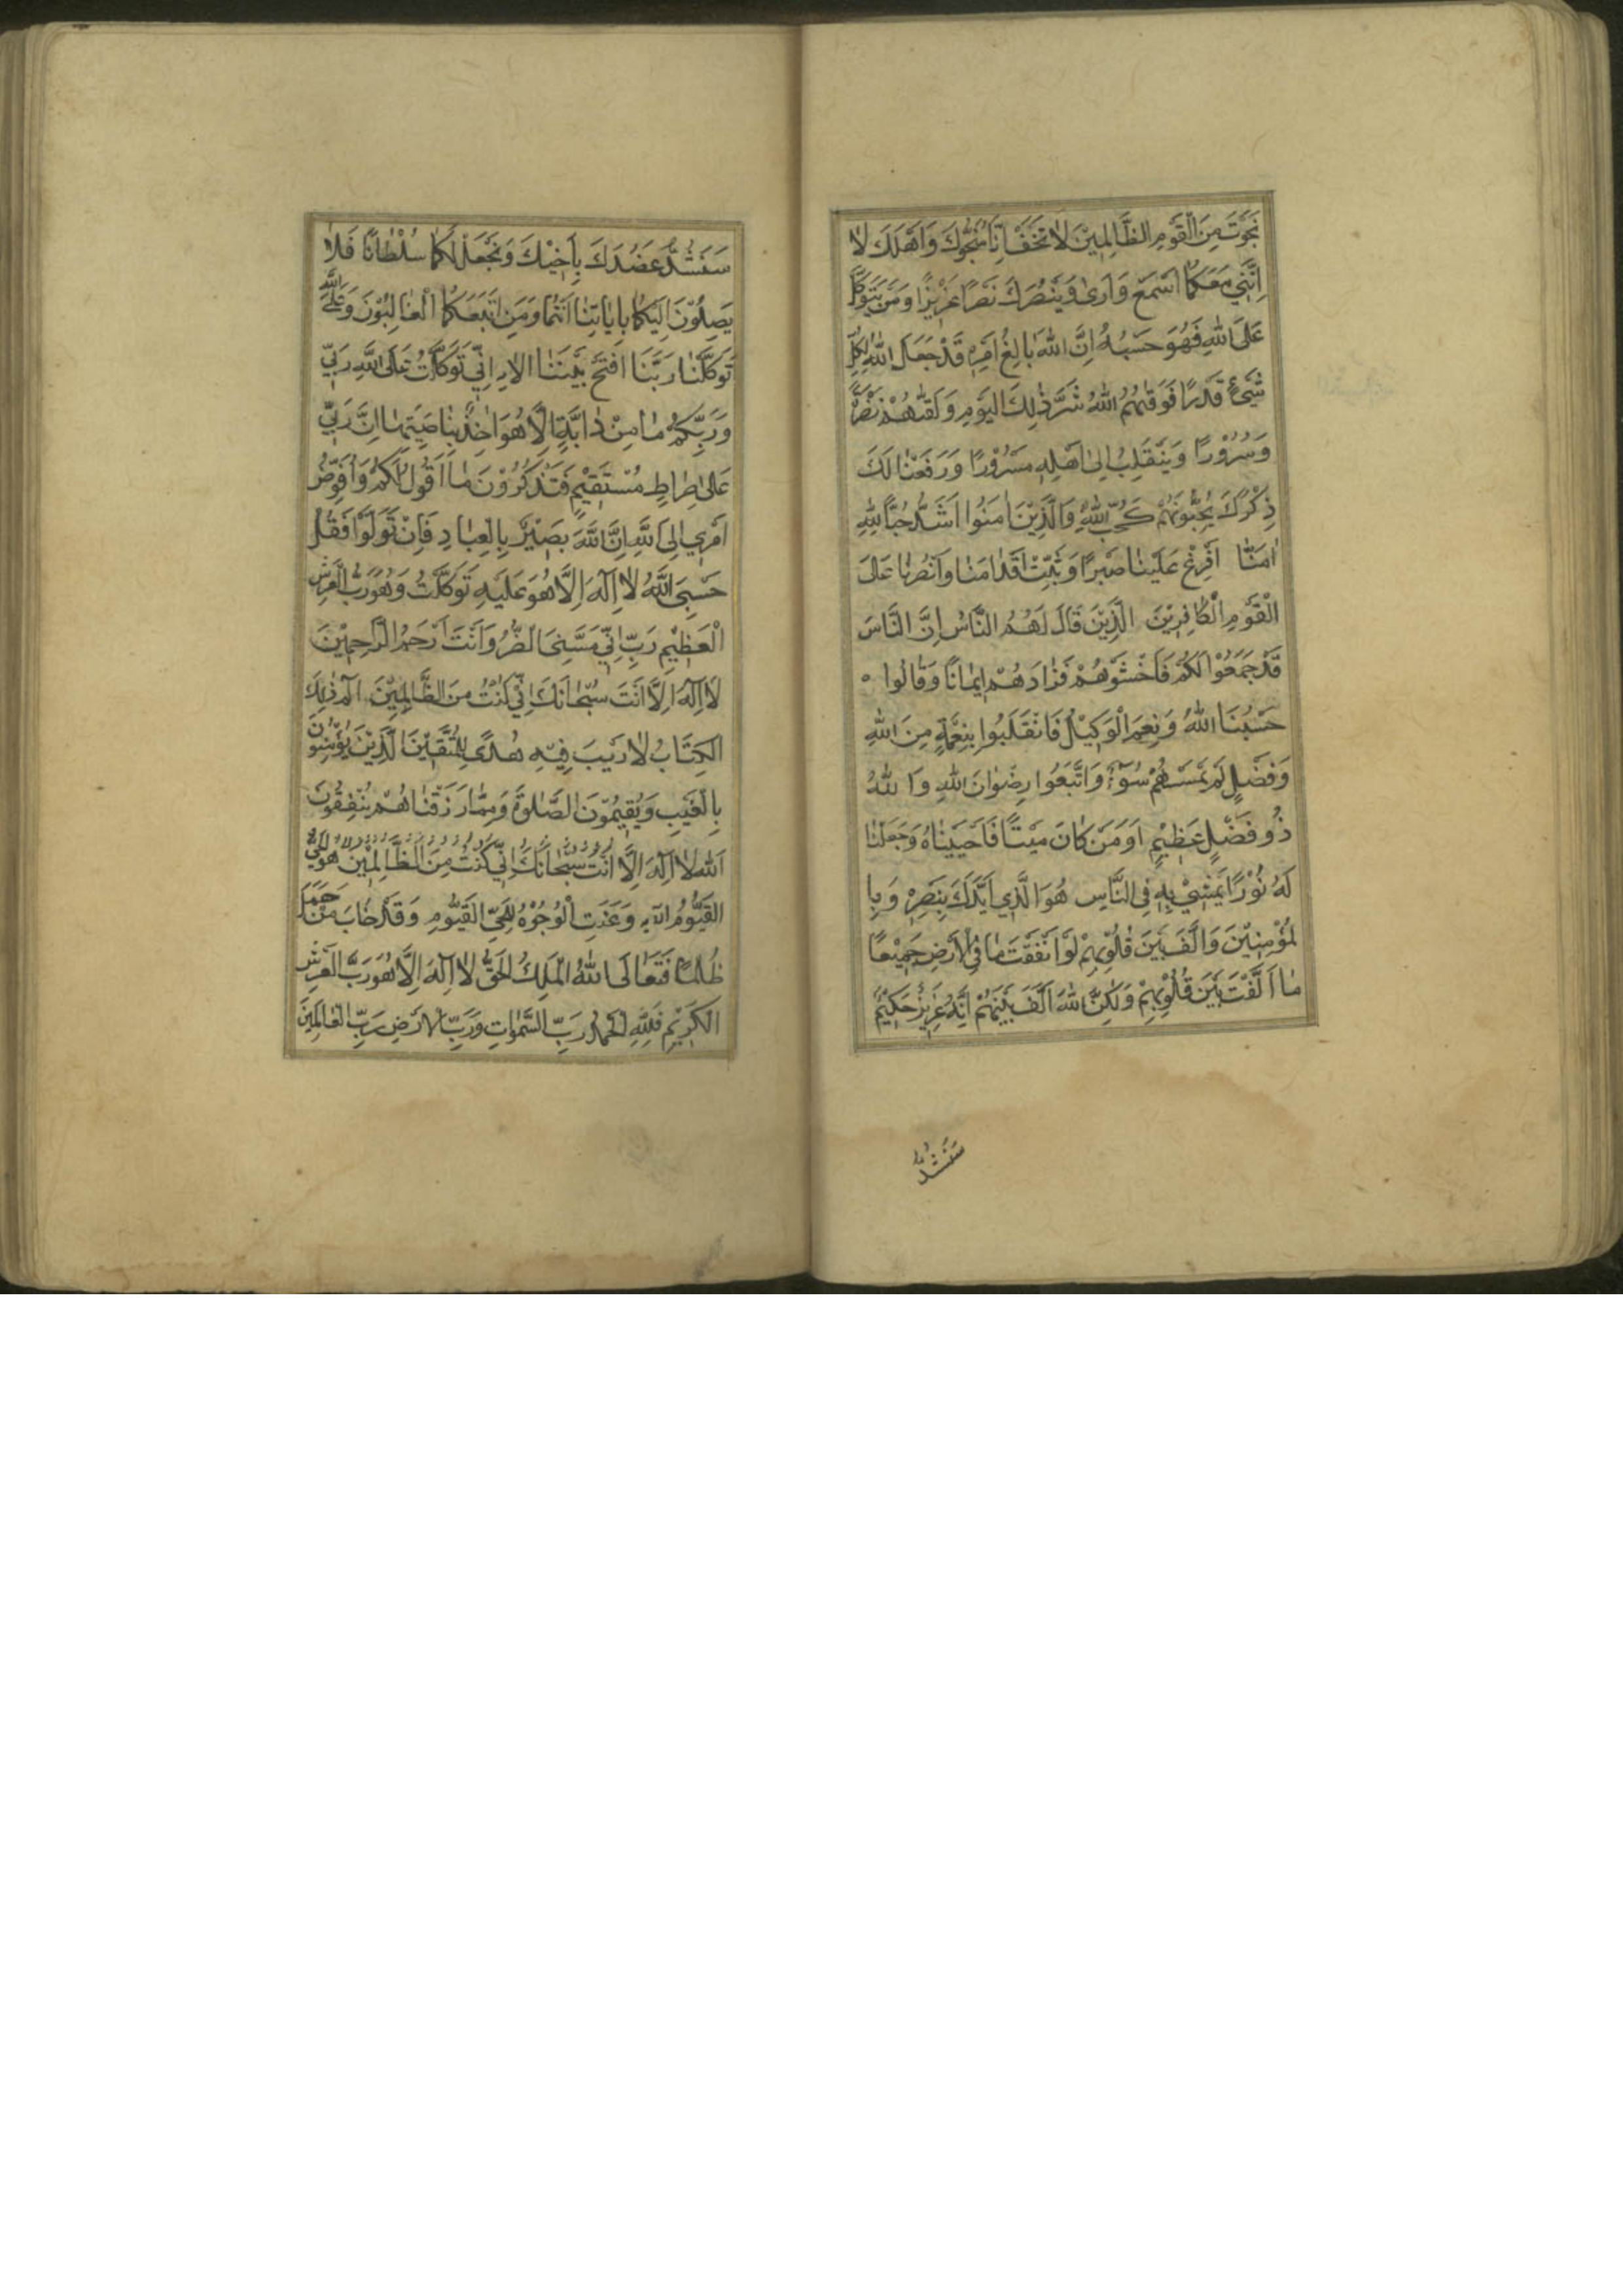 نَجَوْتَ مِنَ الْقَوْمِ الظَّالِمِيْنَ لَا تَخَفْ اِنَّا مُنَجُّوكَ وَاَهْلَكَ لَا
اِنَّنِي مَعَكُمَا اَسْمَعُ وَاَرَى وَيَنْصُرَكَ نَصْرًا عَزِيْزًا وَمَنْ يَتَوَكَّلْ
عَلَى اللهِ فَهُوَ حَسْبُهُ اِنَّ اللهَ بَالِغُ اَمْرِهِ قَدْ جَعَلَ اللهُ لِكُلِّ
شَيْءٍ قَدْرًا فَوَقٰهُمُ اللهُ شَرَّ ذٰلِكَ الْيَوْمِ وَلَقّٰهُمْ نَضْرَةً
وَسُرُوْرًا وَيَنْقَلِبُ اِلٰى اَهْلِهِ مَسْرُوْرًا وَرَفَعْنَا لَكَ
ذِكْرَكَ يُحِبُّونَهُمْ كَحُبِّ اللهِ وَالَّذِيْنَ اٰمَنُوا اَشَدُّ حُبًّا لِلهِ
اٰمَنَّا اَفْرِغْ عَلَيْنَا صَبْرًا وَثَبِّتْ اَقْدَامَنَا وَانْصُرْنَا عَلَى
الْقَوْمِ الْكَافِرِيْنَ الَّذِيْنَ قَالَ لَهُمُ النَّاسُ اِنَّ النَّاسَ
قَدْ جَمَعُوْا لَكُمْ فَاخْشَوْهُمْ فَزَادَهُمْ اِيْمَانًا وَقَالُوا
حَسْبُنَا اللهُ وَنِعْمَ الْوَكِيْلُ فَانْقَلَبُوا بِنِعْمَةٍ مِنَ اللهِ
وَفَضْلٍ لَمْ يَمْسَسْهُمْ سُوْءٌ وَاتَّبَعُوا رِضْوَانَ اللهِ وَاللهُ
ذُو فَضْلٍ عَظِيْمٍ اَوَمَنْ كَانَ مَيْتًا فَاَحْيَيْنَاهُ وَجَعَلْنَا
لَهُ نُوْرًا يَمْشِيْ بِهِ فِي النَّاسِ هُوَ الَّذِي اَيَّدَكَ بِنَصْرِهِ وَبِا
لْمُؤْمِنِيْنَ وَاَلَّفَ بَيْنَ قُلُوْبِهِمْ لَوْ اَنْفَقْتَ مَا فِي الْاَرْضِ جَمِيْعًا
مَا اَلَّفْتَ بَيْنَ قُلُوْبِهِمْ وَلٰكِنَّ اللهَ اَلَّفَ بَيْنَهُمْ اِنَّهُ عَزِيْزٌ حَكِيْمٌ
سَنَشُدُّ
سَنَشُدُّ عَضُدَكَ بِاَخِيْكَ وَنَجْعَلُ لَكُمَا سُلْطَانًا فَلَا
يَصِلُوْنَ اِلَيْكُمَا بِاٰيَاتِنَا اَنْتُمَا وَمَنِ اتَّبَعَكُمَا الْغَالِبُوْنَ وَعَلَى اللهِ
تَوَكَّلْنَا رَبَّنَا افْتَحْ بَيْنَنَا الاية اِنِّي تَوَكَّلْتُ عَلَى اللهِ رَبِّي
وَرَبِّكُمْ مَا مِنْ دَابَّةٍ اِلَّا هُوَ اٰخِذٌ بِنَاصِيَتِهَا اِنَّ رَبِّي
عَلٰى صِرَاطٍ مُسْتَقِيْمٍ فَسَتَذْكُرُوْنَ مَا اَقُوْلُ لَكُمْ وَاُفَوِّضُ
اَمْرِي اِلَى اللهِ اِنَّ اللهَ بَصِيْرٌ بِالْعِبَادِ فَاِنْ تَوَلَّوْا فَقُلْ
حَسْبِيَ اللهُ لَا اِلٰهَ اِلَّا هُوَ عَلَيْهِ تَوَكَّلْتُ وَهُوَ رَبُّ الْعَرْشِ
الْعَظِيْمِ رَبِّ اِنِّي مَسَّنِيَ الضُّرُّ وَاَنْتَ اَرْحَمُ الرَّاحِمِيْنَ
لَا اِلٰهَ اِلَّا اَنْتَ سُبْحَانَكَ اِنِّي كُنْتُ مِنَ الظَّالِمِيْنَ الم ذٰلِكَ
الْكِتَابُ لَا رَيْبَ فِيْهِ هُدًى لِلْمُتَّقِيْنَ الَّذِيْنَ يُؤْمِنُوْنَ
بِالْغَيْبِ وَيُقِيْمُوْنَ الصَّلٰوةَ وَمِمَّا رَزَقْنَاهُمْ يُنْفِقُوْنَ
اَللهُ لَا اِلٰهَ اِلَّا اَنْتَ سُبْحَانَكَ اِنِّي كُنْتُ مِنَ الظَّالِمِيْنَ هُوَ الْحَيُّ
الْقَيُّوْمُ الاية وَعَنَتِ الْوُجُوْهُ لِلْحَيِّ الْقَيُّوْمِ وَقَدْ خَابَ مَنْ حَمَلَ
ظُلْمًا فَتَعَالَى اللهُ الْمَلِكُ الْحَقُّ لَا اِلٰهَ اِلَّا هُوَ رَبُّ الْعَرْشِ
الْكَرِيْمِ فَلِلّٰهِ الْحَمْدُ رَبِّ السَّمٰوَاتِ وَرَبِّ الْاَرْضِ رَبِّ الْعَالَمِيْنَ